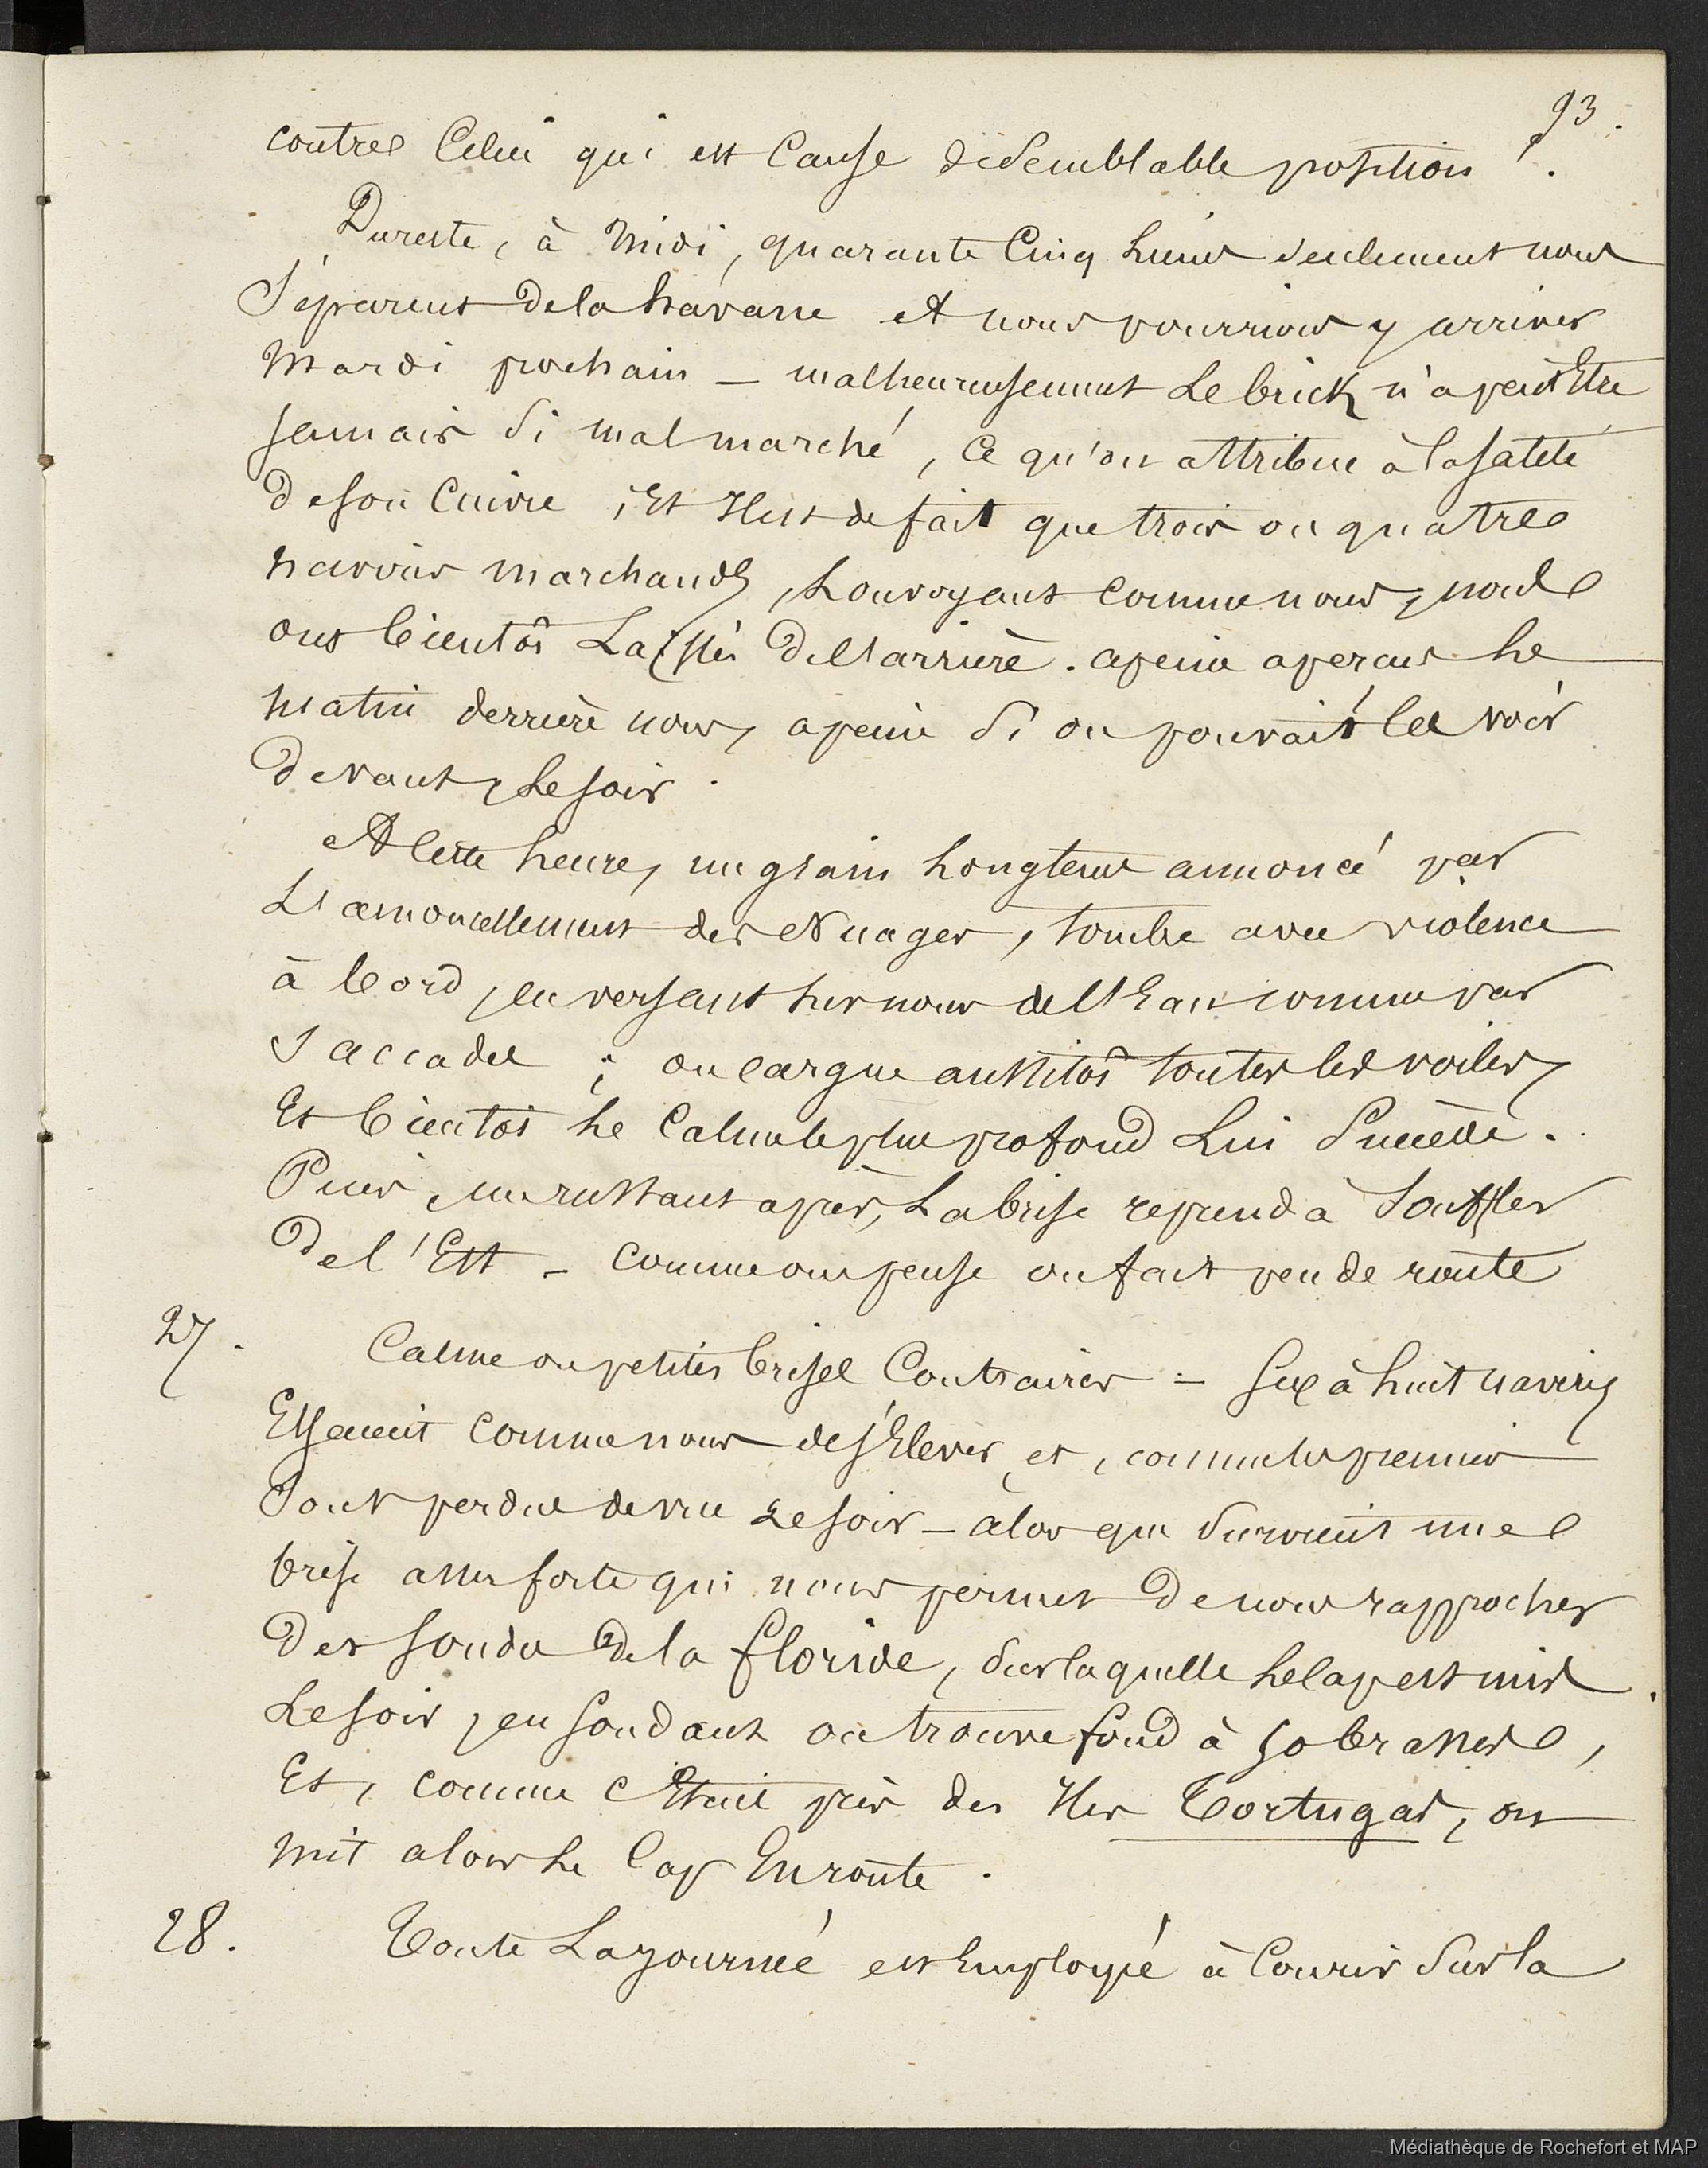 93.
contre Celui qui est Cause de Semblable position !.
Dureste, à Midi, quarante Cinq Lieues seulement nous
Séparent de la havane et nous pourrions y arriver
Mardi prochain — malheureusement Le brick n'a peut Etre
jamais si mal marché, Ce qu'on attribue à la saleté
de son Cuivre ; Et Il est de fait que trois ou quatre
navires marchands, Louvoyant comme nous, nous
ont bientôt Laissés de l'arrière. apeine aperçus Le
matin derrière nous, apeine si on pouvait les voir
devant, Le soir.
A Cette heure, un grain Longtems annoncé par
L'amoncellement des Nuages, tombe avec violence
à bord, en versant sur nous de l'Eau comme par
saccades ; on cargue aussitôt toutes les voiles,
Et bientôt Le Calme le plus profond Lui Succède.
Puis, un instant après, La brise reprend à Souffler
de l'Est — comme on pense on fait peu de route
27. Calme ou petites brises Contraires = Six à huit navires
Essaient comme nous de s'Elever, et, comme les premiers
Sont perdus de vue Le soir — alors que survient une
brise assez forte qui nous permet de nous rapprocher
des sondes de la floride, sur laquelle Le Cap est mis.
Le soir, en sondant on trouve fond à 50 brasses,
Et, comme c'Etait près des Iles Tortugas, on
mit alors Le Cap En route.
28. Toute La journée est Employée à Courir Sur la
Médiathèque de Rochefort et MAP